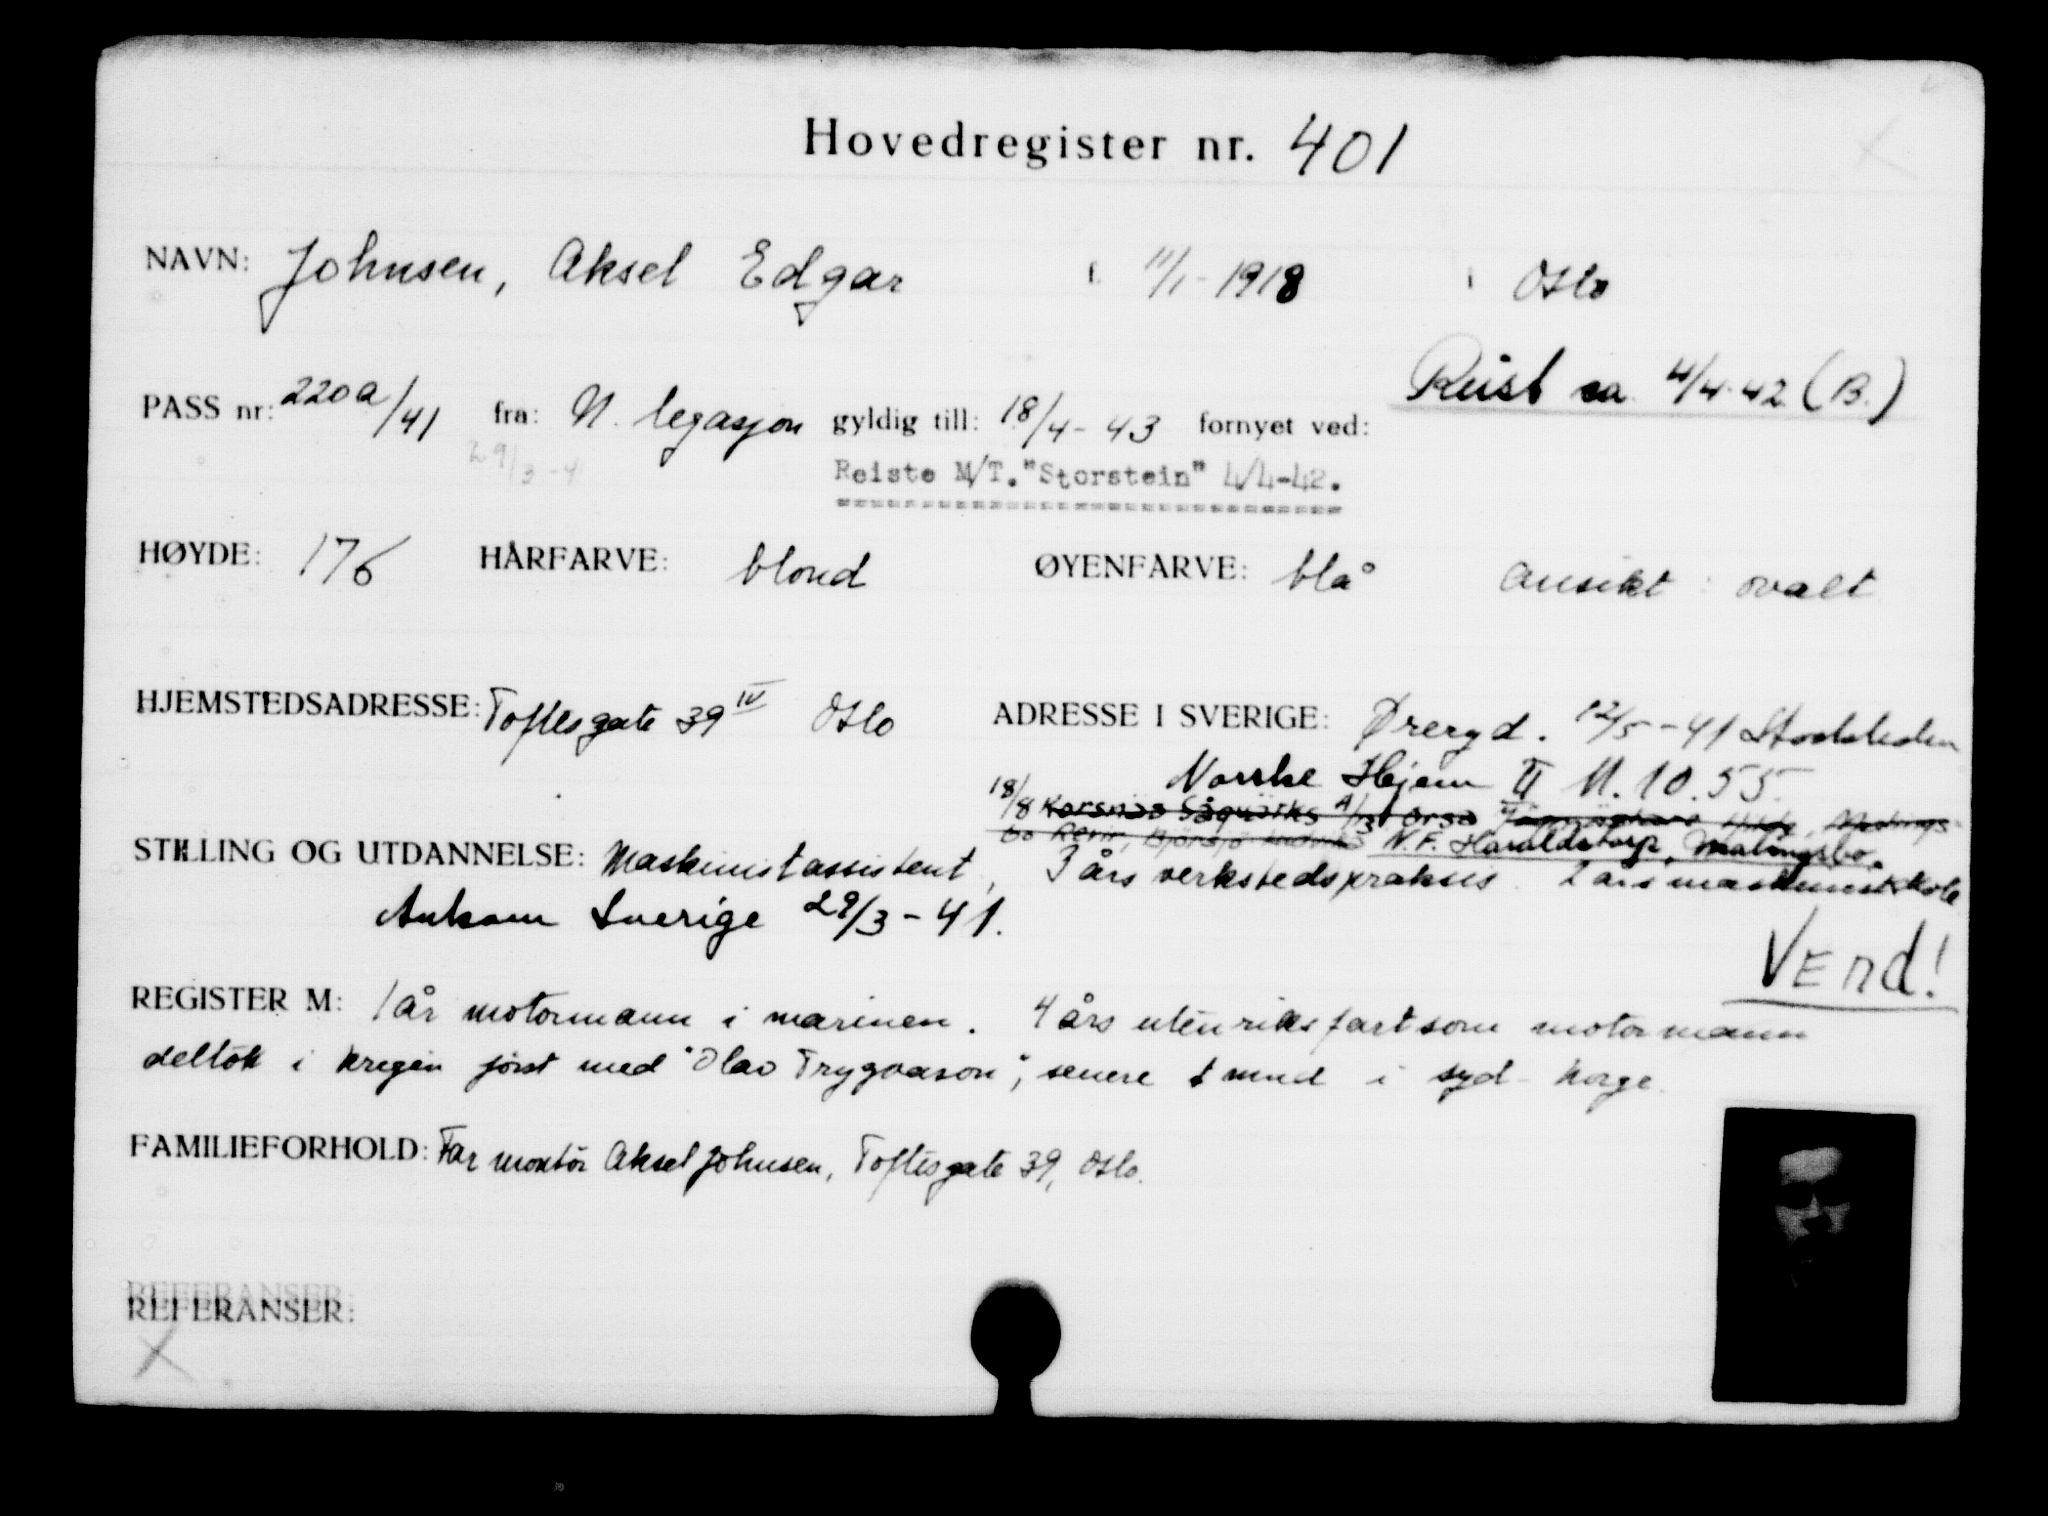 Hovedregister nr. 401
NAVN: Johnsen, Aksel Edgar f. 11/1-1918 i Oslo
Reist sa. 4/4-42 (B.)
PASS nr: 220a/41 fra: N. legasjon gyldig till: 18/4-43 fornyet ved:
29/3-4
Reiste M/T. "Storstein" 4/4-42.
HØYDE: 176 HÅRFARVE: blond ØYENFARVE: blå ansikt: ovalt
HJEMSTEDSADRESSE: Toftesgate 39 IV Oslo ADRESSE I SVERIGE: Øreryd. 12/5-41
Norske Hjem II M.10.55.
18/8 Korsnäs Sågverks A/B Orsa
bo Revir, N.F. Haraldstorp, Malingsbo.
STILLING OG UTDANNELSE: Maskinistassistent, 3 års verkstedspraksis. 2 års maskinistskole
Ankom Sverige 29/3-41.
Vend!
REGISTER M: 1 år motormann i marinen. 4 års utenriksfart som motormann
deltok i krigen først med "Olav Trygvason", senere 1 mnd i syd-Norge.
FAMILIEFORHOLD: Far montør Aksel Johnsen, Toftesgate 39, Oslo.
REFERANSER:
REFERANSER: